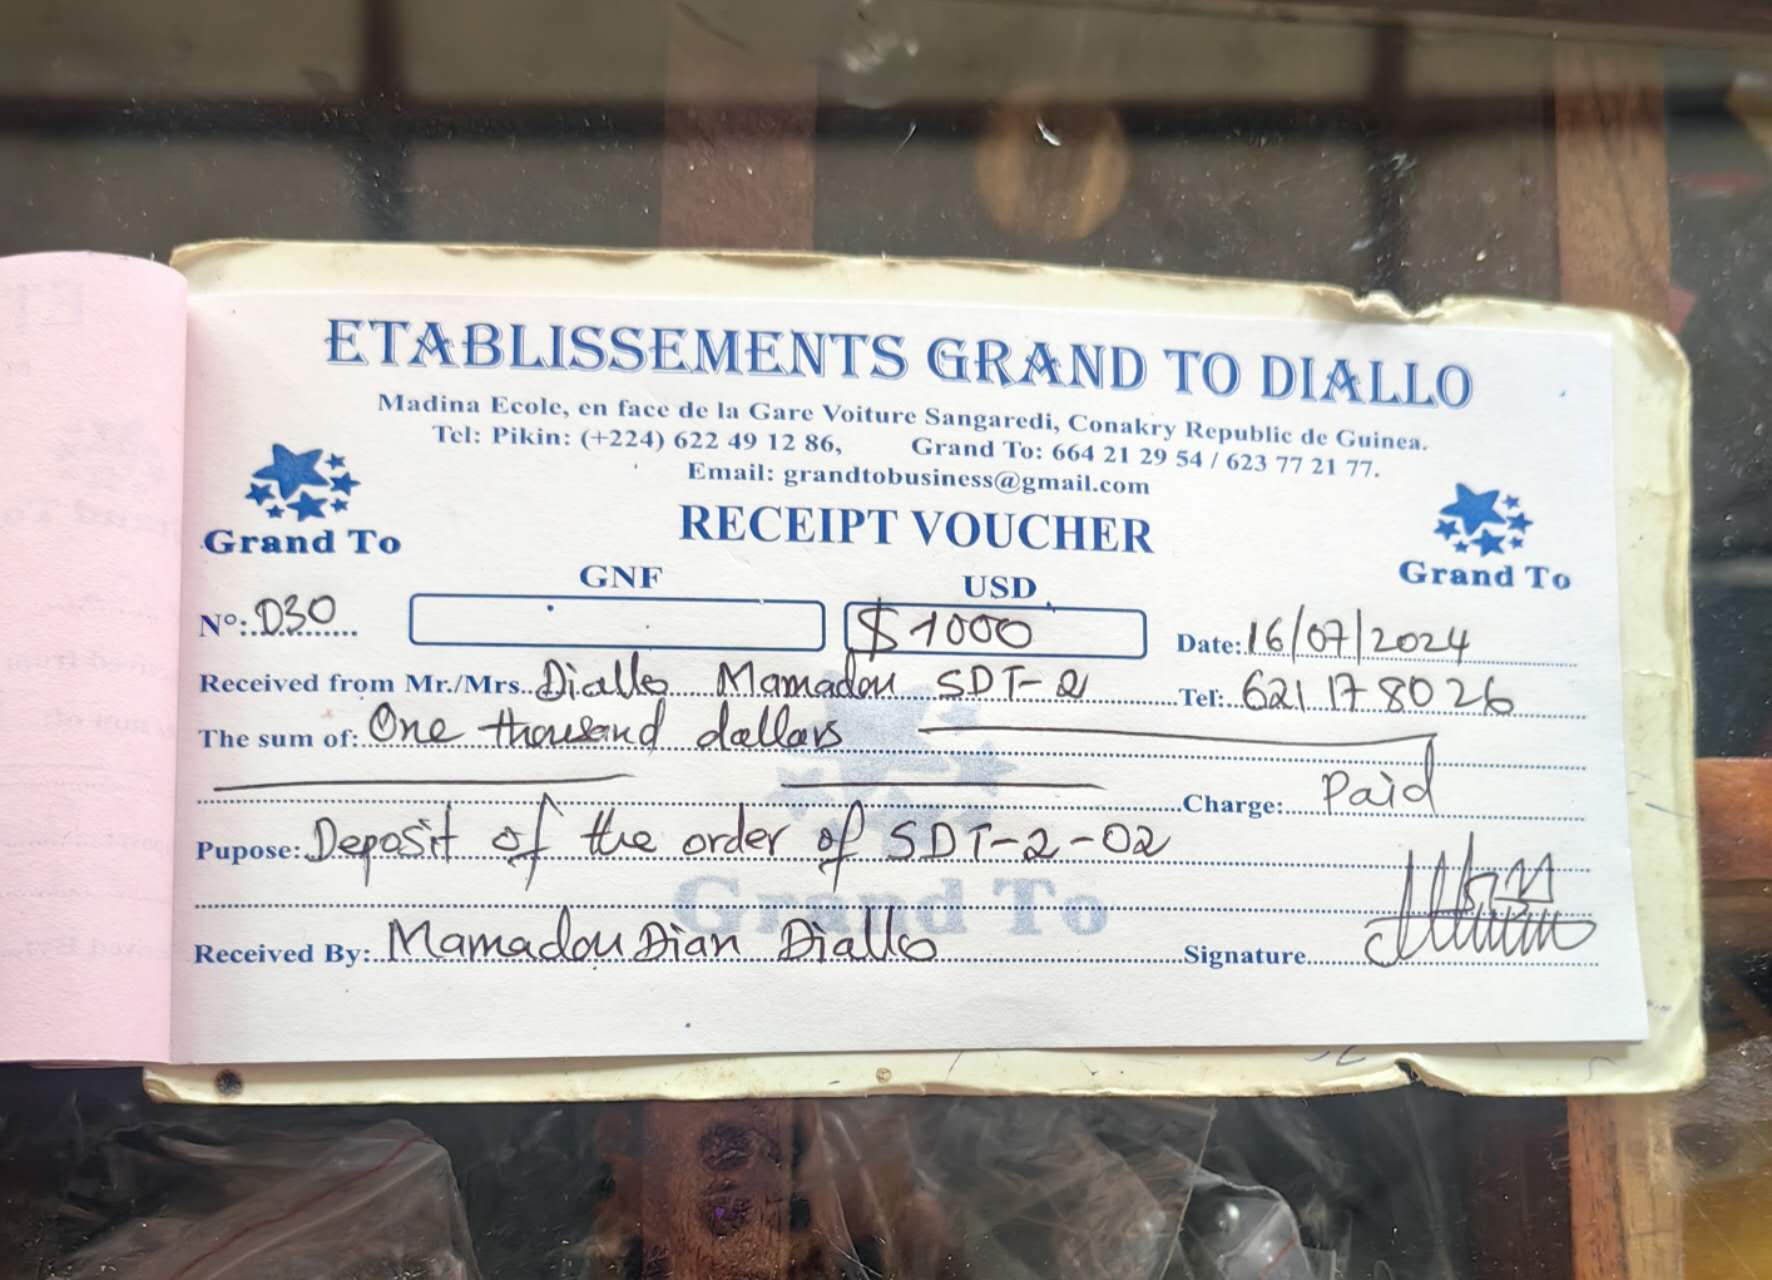 ETABLISSEMENTS GRAND TO DIALLO
Madina Ecole, en face de la Gare Voiture Sangaredi, Conakry Republic de Guinea.
Tel: Pikin: (+224) 622 49 12 86, Grand To: 664 21 29 54 / 623 77 21 77.
Email: grandtobusiness@gmail.com
Grand To
RECEIPT VOUCHER
Grand To
GNF USD
Nº: 030 $ 1000 Date: 16/07/2024
Received from Mr./Mrs. Diallo Mamadou SDT-2 Tel: 621 17 80 26
The sum of: One thousand dollars
Charge: Paid
Pupose: Deposit of the order of SDT-2-02
Grand To
Received By: Mamadou Dian Diallo Signature